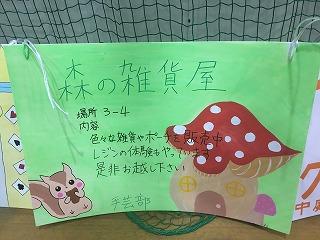 森の雑貨屋
場所 3-4
内容
色々な雑貨やポーチを販売中
レジンの体験もやっています
是非お越し下さい
手芸部
ク
中庭